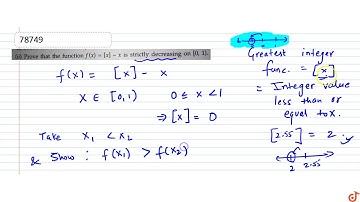 78749
(v) Prove that the function f(x) = [x] − x is strictly decreasing on [0, 1).
f(x) = [x] - x
x ∈ [0,1) 0 ≤ x < 1
⇒ [x] = 0
Take x₁ < x₂
& Show : f(x₁) > f(x₂)
2
Greatest integer
func. = [x]
= Integer value
less than or
equal to x.
[2.55] = 2
2 2.55